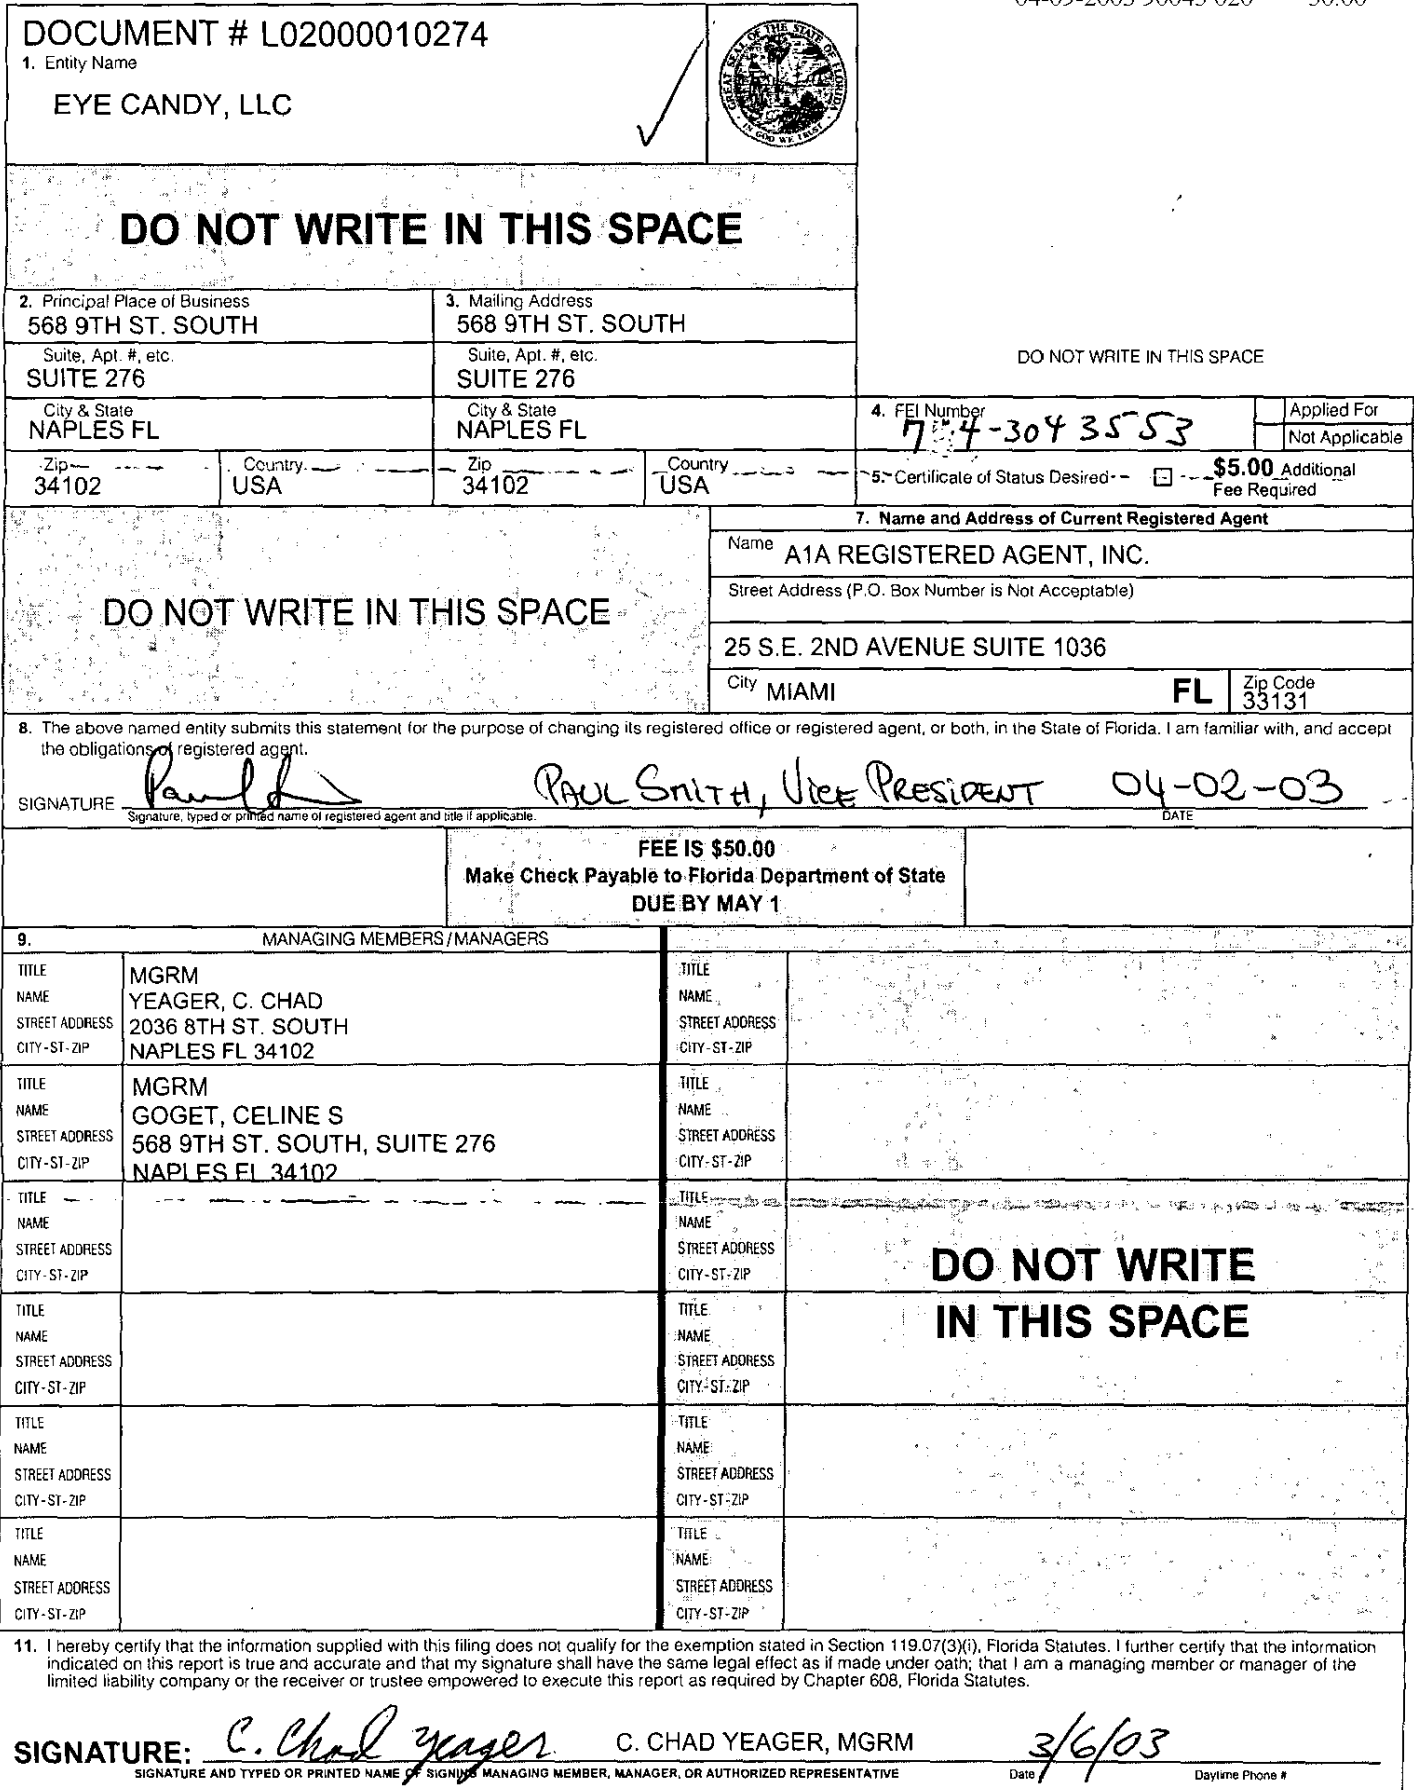 DOCUMENT # L02000010274
1. Entity Name
EYE CANDY, LLC
GREAT SEAL OF THE STATE OF FLORIDA
IN GOD WE TRUST
DO NOT WRITE IN THIS SPACE
2. Principal Place of Business
568 9TH ST. SOUTH
3. Mailing Address
568 9TH ST. SOUTH
Suite, Apt. #, etc.
SUITE 276
Suite, Apt. #, etc.
SUITE 276
DO NOT WRITE IN THIS SPACE
City & State
NAPLES FL
City & State
NAPLES FL
4. FEI Number
Applied For
Not Applicable
Zip
34102
Country
USA
Zip
34102
Country
USA
5. Certificate of Status Desired
$5.00 Additional
Fee Required
DO NOT WRITE IN THIS SPACE
7. Name and Address of Current Registered Agent
Name A1A REGISTERED AGENT, INC.
Street Address (P.O. Box Number is Not Acceptable)
25 S.E. 2ND AVENUE SUITE 1036
City MIAMI FL Zip Code
33131
8. The above named entity submits this statement for the purpose of changing its registered office or registered agent, or both, in the State of Florida. I am familiar with, and accept
the obligations of registered agent.
SIGNATURE PAUL SMITH, VICE PRESIDENT 04-02-03
Signature, typed or printed name of registered agent and title if applicable. DATE
FEE IS $50.00
Make Check Payable to Florida Department of State
DUE BY MAY 1
9. MANAGING MEMBERS/MANAGERS
TITLE MGRM
NAME YEAGER, C. CHAD
STREET ADDRESS 2036 8TH ST. SOUTH
CITY-ST-ZIP NAPLES FL 34102
TITLE
NAME
STREET ADDRESS
CITY-ST-ZIP
TITLE MGRM
NAME GOGET, CELINE S
STREET ADDRESS 568 9TH ST. SOUTH, SUITE 276
CITY-ST-ZIP NAPLES FL 34102
TITLE
NAME
STREET ADDRESS
CITY-ST-ZIP
TITLE
NAME
STREET ADDRESS
CITY-ST-ZIP
TITLE
NAME
STREET ADDRESS
CITY-ST-ZIP
DO NOT WRITE
IN THIS SPACE
TITLE
NAME
STREET ADDRESS
CITY-ST-ZIP
TITLE
NAME
STREET ADDRESS
CITY-ST-ZIP
TITLE
NAME
STREET ADDRESS
CITY-ST-ZIP
TITLE
NAME
STREET ADDRESS
CITY-ST-ZIP
TITLE
NAME
STREET ADDRESS
CITY-ST-ZIP
TITLE
NAME
STREET ADDRESS
CITY-ST-ZIP
11. I hereby certify that the information supplied with this filing does not qualify for the exemption stated in Section 119.07(3)(i), Florida Statutes. I further certify that the information
indicated on this report is true and accurate and that my signature shall have the same legal effect as if made under oath; that I am a managing member or manager of the
limited liability company or the receiver or trustee empowered to execute this report as required by Chapter 608, Florida Statutes.
SIGNATURE: C. Chad Yeager C. CHAD YEAGER, MGRM 3/6/03
SIGNATURE AND TYPED OR PRINTED NAME OF SIGNING MANAGING MEMBER, MANAGER, OR AUTHORIZED REPRESENTATIVE Date Daytime Phone #